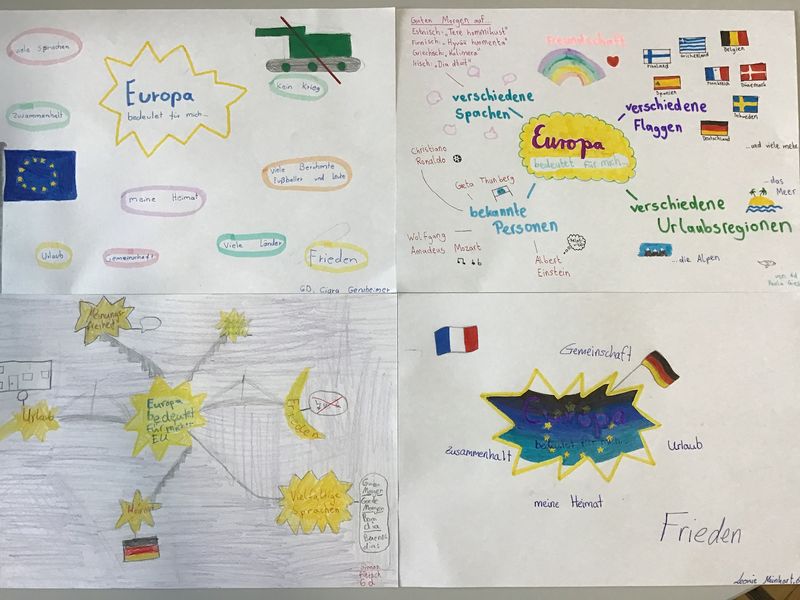 viele Sprachen
Europa
bedeutet für mich...
Kein Krieg
Zusammenhalt
viele Berühmte
Fußballer und Leute
meine Heimat
Urlaub
Gemeinschaft
Viele Länder
Frieden
6D, Ciara Gensheimer
Guten Morgen auf...
Estnisch: „Tere hommikust"
Finnisch: „Hyvää huomenta"
Griechisch: „Kaliméra"
Irisch: „Dia dhuit"
Freundschaft
verschiedene
Spachen
Europa
bedeutet für mich...
verschiedene
Flaggen
Finnland
Griechenland
Belgien
Spanien
Frankreich
Dänemark
Schweden
Deutschland
...und viele mehr
Christiano
Ronaldo
Greta Thunberg
bekannte
Personen
Wolfgang
Amadeus Mozart
Albert
Einstein
verschiedene
Urlaubsregionen
...das
Meer
...die Alpen
von
Meinungs-
freiheit
Urlaub
Europa
bedeutet
für mich...
EU
Frieden
Heimat
Vielfältige
Sprachen
Guten
Morgen
Bom
dia
Buenos
dias
Simon
6d
Gemeinschaft
Europa
bedeutet für mich...
zusammenhalt
Urlaub
meine Heimat
Frieden
Leonie